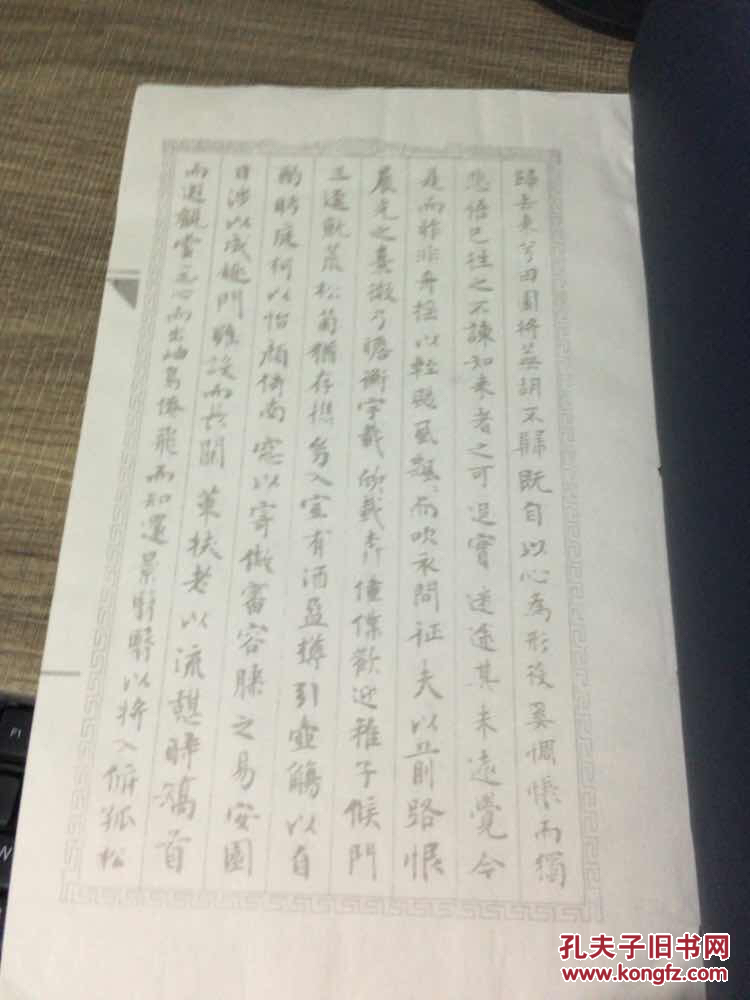 歸去來兮田園將蕪胡不歸既自以心為形役奚惆悵而獨
悲悟已往之不諫知來者之可追實迷途其未遠覺今
是而昨非舟搖以輕颺風飄而吹衣問征夫以前路恨
晨光之熹微乃瞻衡宇載欣載奔僮僕歡迎稚子候門
三逕就荒松菊猶存携幼入室有酒盈樽引壺觴以自
酌眄庭柯以怡顏倚南窓以寄傲審容膝之易安園
日涉以成趣門雖設而長關策扶老以流憩時矯首
而遐觀雲无心而出岫鳥倦飛而知還景翳翳以將入撫孤松
孔夫子旧书网
www.kongfz.com
F1
N